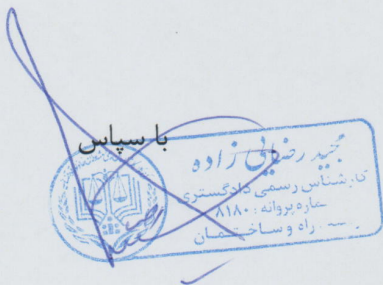 با سپاس
مجید رضایی زاده
کارشناس رسمی دادگستری
شماره پروانه : ۸۱۸۰
راه و ساختمان